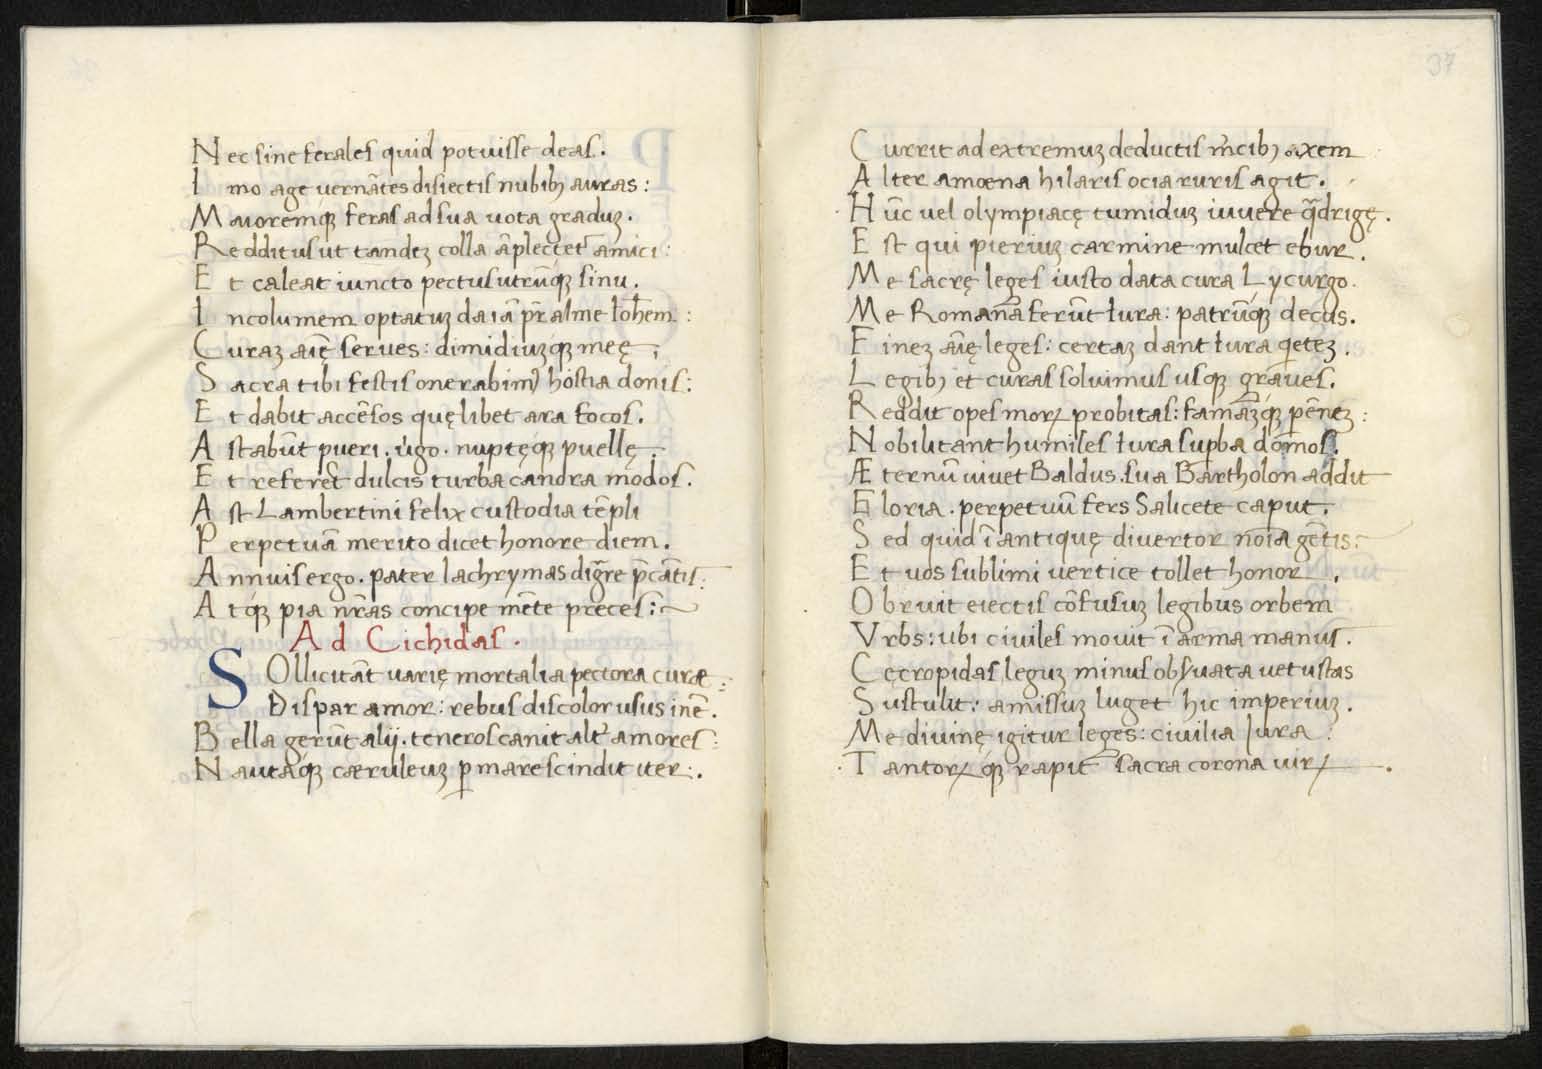 Nec sine ferales quid potuisse deas.
Imo age uernātes disiectis nubibꝫ auras:
Maioremqꝫ feras ad sua uota graduꝫ.
Redditus ut tandeꝫ colla āplectet᷑ amici:
Et caleat iuncto pectus utrūqꝫ sinu.
Incolumem optatuꝫ da iā pr̄ alme Ioh̄em:
Curaꝫ aīę serues: dimidiuꝫqꝫ meę,
Sacra tibi festis onerabimꝰ hostia donis:
Et dabit accēsos quęlibet ara focos.
Astabūt pueri. ůgo. nuptęqꝫ puellę.
Et referet dulcis turba canora modos.
Ast Lambertini felix custodia tēpli
Perpetuā merito dicet honore diem.
Annuis ergo. pater lachrymas digr̄e p̄cātis:
Atqꝫ pia nr̄as concipe mēte preces:
Ad Cichidas.
SOllicitāt uarię mortalia pectora curæ:
Dispar amor: rebus discolor usus inē.
Bella gerūt alij. teneros canit alt᷑ amores:
Nautaqꝫ cæruleuꝫ ꝑ mare scindit iter:.
37
Currit ad extremuꝫ deductis m̄cibꝫ axem
Alter amœna hilaris ocia ruris agit.
Hūc uel olympiacę tumiduꝫ iuuere q̄drigę.
Est qui pieriuꝫ carmine mulcet ebur.
Me sacrę leges iusto data cura Lycurgo.
Me Romanā ferūt Iura: patrūqꝫ decus.
Fineꝫ aīę leges: certaꝫ dant Iura qeteꝫ.
Legibꝫ et curas soluimus usqꝫ graues.
Reddit opes morꝝ probitas: famāqꝫ pēneꝫ:
Nobilitant humiles Iura supba domos.
Æternū uiuet Baldus. sua Bartholon addit
Gloria. perpetuū fers Salicete caput.
Sed quid ī antiquę diuertor noīa gētis:
Et uos sublimi uertice tollet honor.
Obruit eiectis cōfusuꝫ legibus orbem
Vrbs: ubi ciuiles mouit ī arma manus.
Cęcropidas leguꝫ minus obs̷uata uetustas
Sustulit: amissuꝫ luget hic imperiuꝫ.
Me diuinę igitur leges: ciuilia Iura:
Tantorꝝ qꝫ rapit sacra corona uirꝝ.